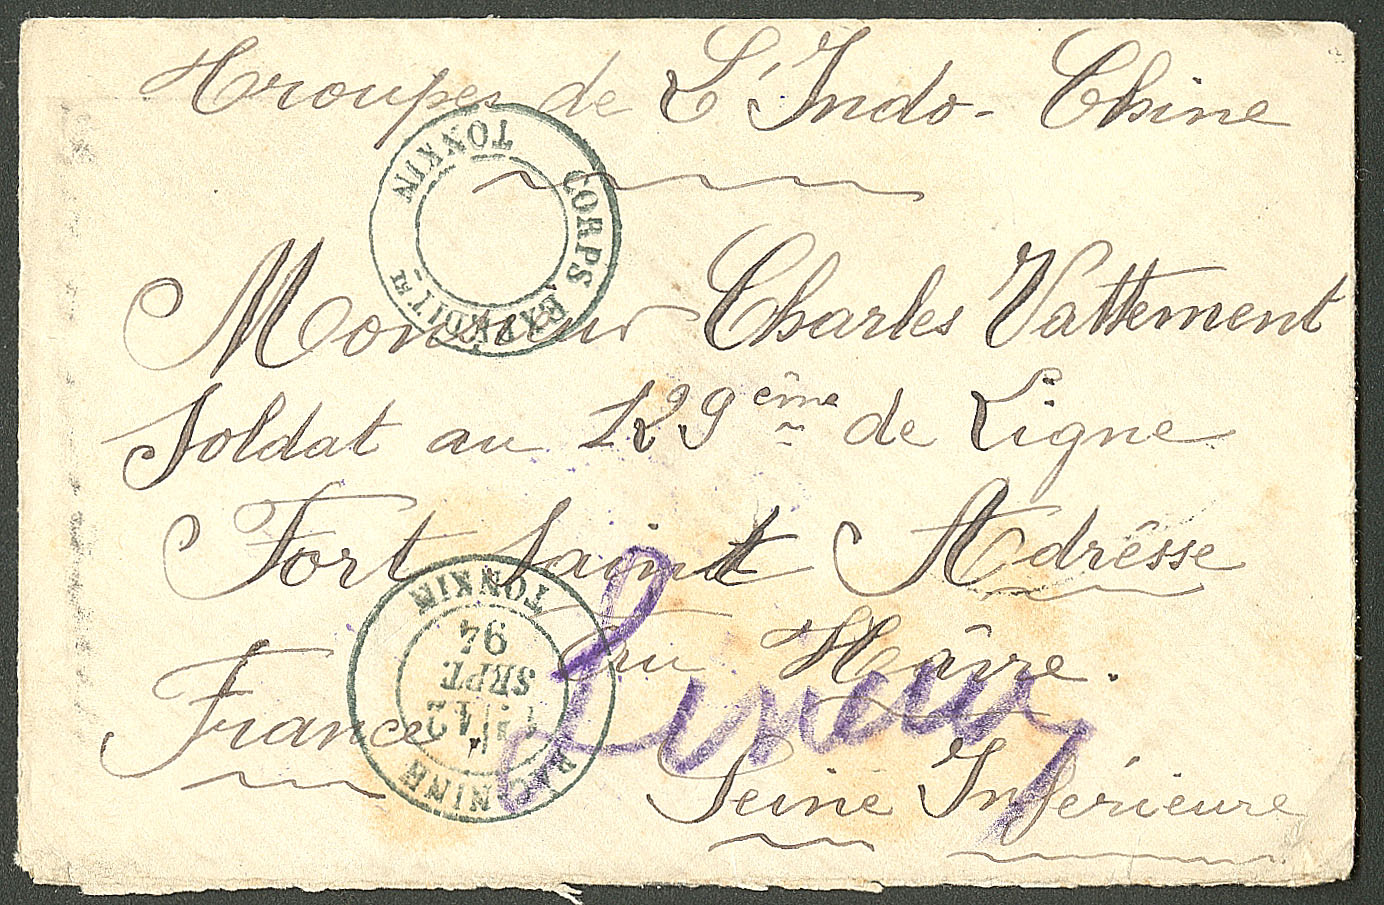 Troupes de L'Indo-Chine
CORPS EXPÉDIT^RE
TONKIN
Monsieur Charles Vattement
Soldat au 129ème de Ligne
Fort Saint Adrêsse
du Hâvre.
France
Seine Inférieure
BAC-NINH
SEPT
94
TONKIN